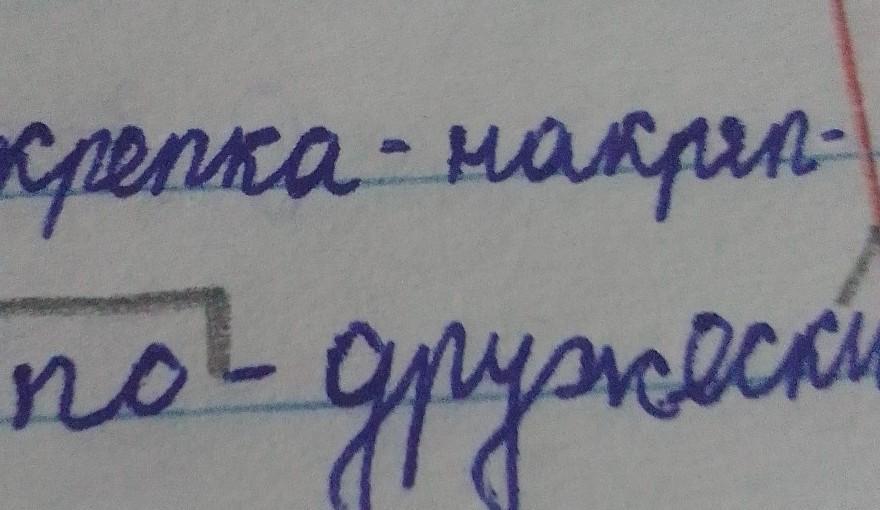 крепка-накряп-
по-дружески